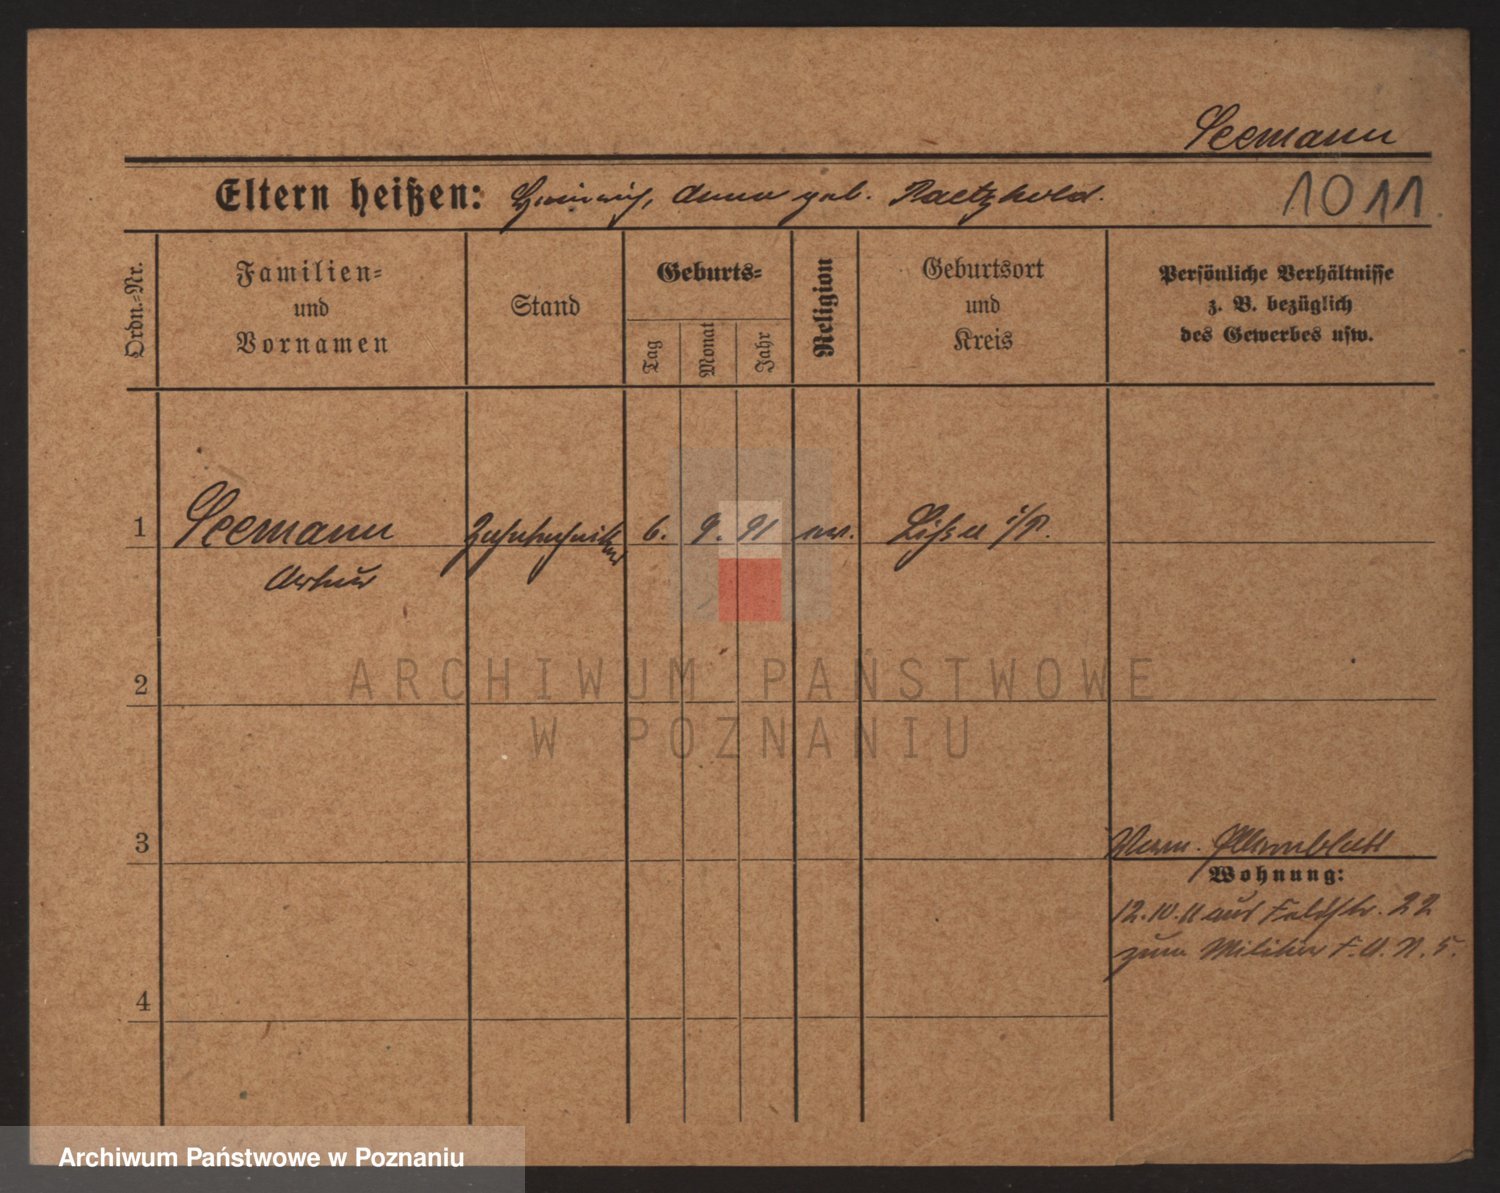 Seemann
Eltern heißen: Heinrich, Anna geb. Raetzhold.
1011.
Ordn.=Nr.
Familien=
und
Vornamen
Stand
Geburts=
Tag
Monat
Jahr
Religion
Geburtsort
und
Kreis
Persönliche Verhältnisse
z. B. bezüglich
des Gewerbes usw.
1 Seemann Zahntechniker 6. 9. 91 ev. Lissa i/P.
Arthur
2
3
Wohnung:
12.10.11 aus Feldstr. 22
zum Militär F. A. R. 5.
4
ARCHIWUM PAŃSTWOWE
W POZNANIU
Archiwum Państwowe w Poznaniu